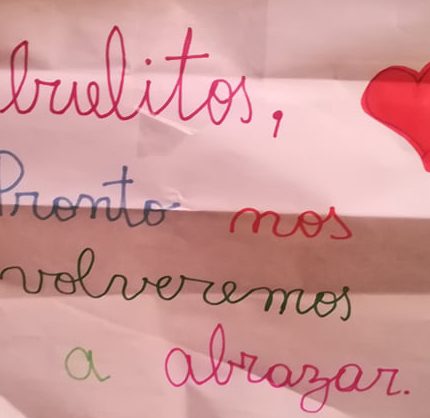 buelitos,
Pronto nos
volveremos
a abrazar.